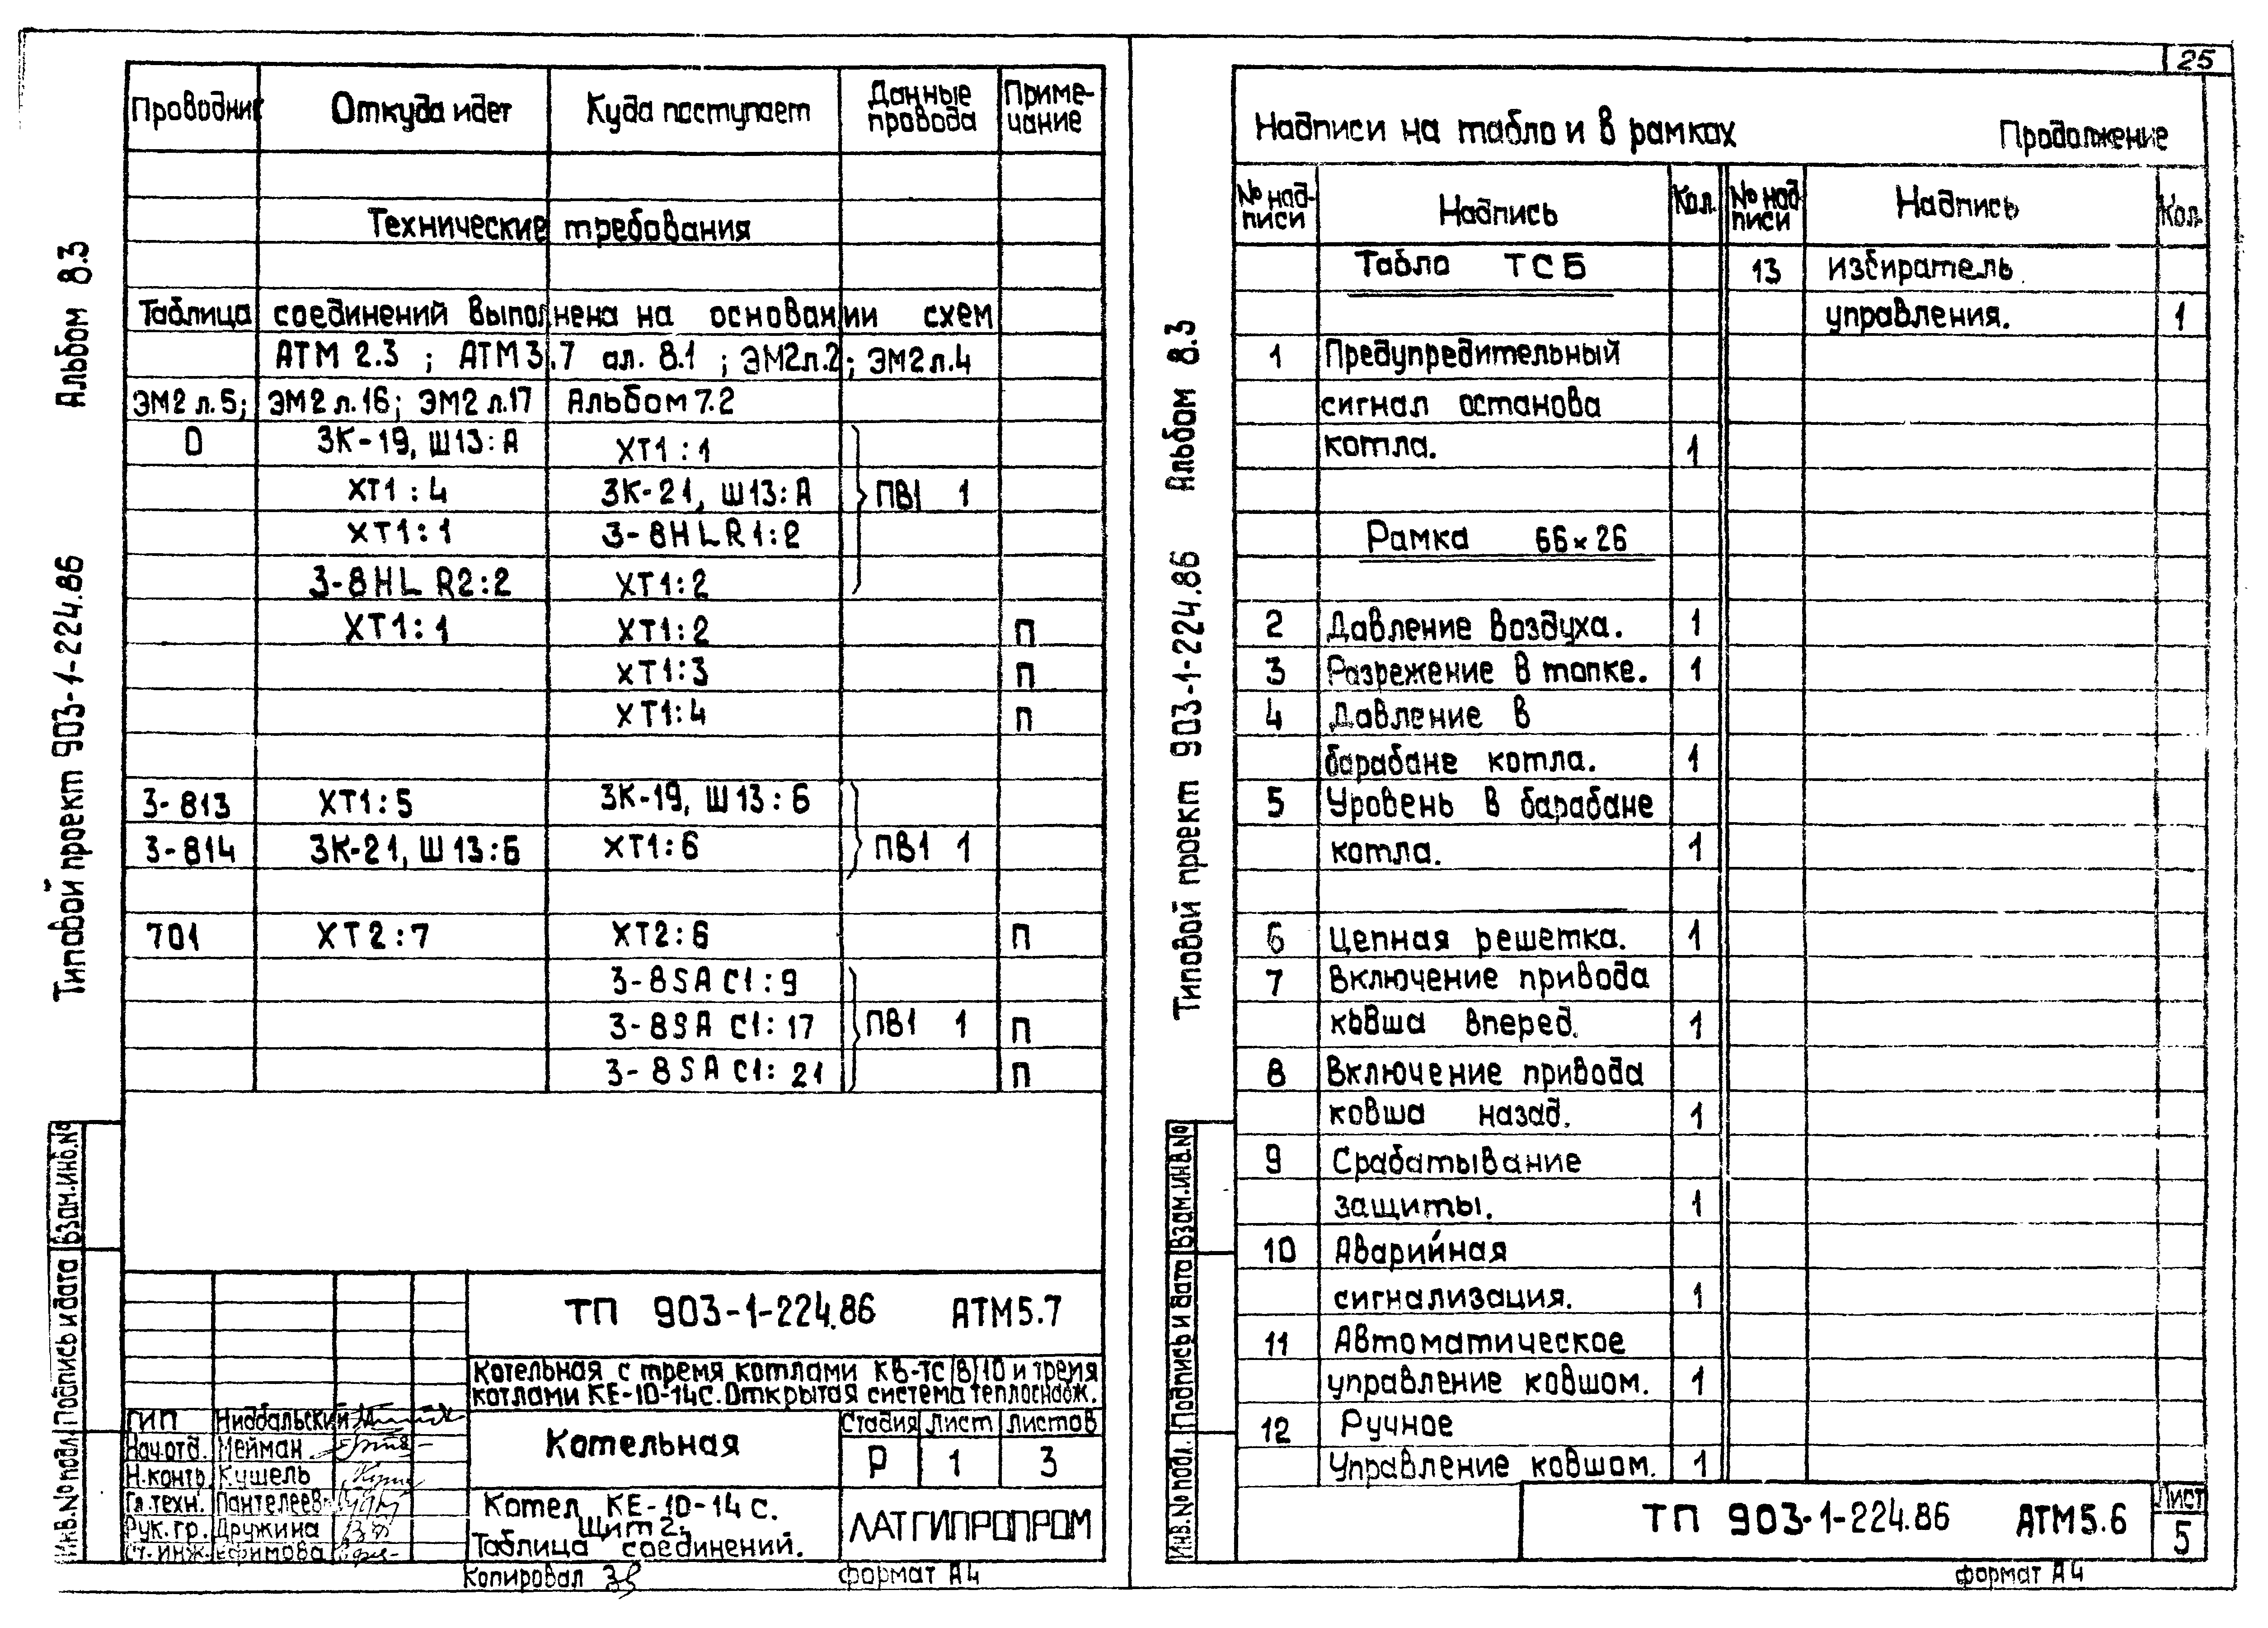 Альбом 8.3
Типовой проект 903-1-224.86
Проводник Откуда идет Куда поступает Данные провода Приме-чание
Технические требования
Таблица соединений выполнена на основании схем
АТМ 2.3 ; АТМ3.7 ал. 8.1 ; ЭМ2л.2; ЭМ2л.4
ЭМ2 л.5; ЭМ2 л.16; ЭМ2 л.17 Альбом 7.2
0 3К-19, Ш13:А ХТ1:1
ХТ1:4 3К-21, Ш13:А ПВ1 1
ХТ1:1 3-8HLR1:2
3-8HL R2:2 ХТ1:2
ХТ1:1 ХТ1:2 П
ХТ1:3 П
ХТ1:4 П
3-813 ХТ1:5 3К-19, Ш13:Б
3-814 3К-21, Ш13:Б ХТ1:6 ПВ1 1
701 ХТ2:7 ХТ2:6 П
3-8SA C1:9
3-8SA C1:17 ПВ1 1 П
3-8SA C1:21 П
Взам.инв.№
Подпись и дата
Инв.№ подл.
ТП 903-1-224.86 АТМ5.7
Котельная с тремя котлами КВ-ТС/В/10 и тремя
котлами КЕ-10-14С. Открытая система теплоснабж.
ГИП Нидбальский
Нач.отд. Мейман
Н.контр. Кушель
Гл.техн. Пантелеев
Рук.гр. Дружина
Ст.инж. Ефимова
Котельная
Стадия Лист Листов
Р 1 3
Котел КЕ-10-14с.
Щит 2.
Таблица соединений.
ЛАТГИПРОПРОМ
Копировал
формат А4
25
Альбом 8.3
Типовой проект 903-1-224.86
Надписи на табло и в рамках Продолжение
№ над-писи Надпись Кол. № над-писи Надпись Кол.
Табло ТСБ 13 избиратель
управления. 1
1 Предупредительный
сигнал останова
котла. 1
Рамка 66×26
2 Давление воздуха. 1
3 Разрежение в топке. 1
4 Давление в
барабане котла. 1
5 Уровень в барабане
котла. 1
6 Цепная решетка. 1
7 Включение привода
ковша вперед. 1
8 Включение привода
ковша назад. 1
9 Срабатывание
защиты. 1
10 Аварийная
сигнализация. 1
11 Автоматическое
управление ковшом. 1
12 Ручное
Управление ковшом. 1
Взам.инв.№
Подпись и дата
Инв.№ подл.
ТП 903-1-224.86 АТМ5.6
Лист
5
формат А4